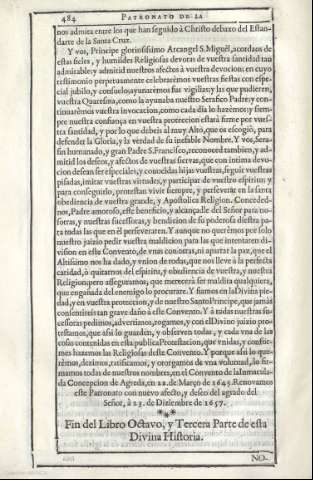 484 PATRONATO DE LA
nos admita entre los que han seguido à Christo debaxo del Estan-
darte de la Santa Cruz.
Y vos, Principe gloriosissimo Arcangel S. Miguèl, acordaos de
estas fieles, y humildes Religiosas devotas de vuestra santidad tan
admirable: y admitid nuestros afectos à vuestra devocion: en cuyo
testimonio perpetuamente celebrarèmos vuestras fiestas con espe-
cial jubilo, y consuelo, ayunarèmos sus vigilias; y las que pudieren,
vuestra Quaresma, como la ayunaba nuestro Serafico Padre; y con-
tinuarèmos vuestra invocacion, como cada dia lo hazèmos; y siem-
pre nuestra confiança en vuestra proteccion estarà firme por vues-
tra santidad, y por lo que debeis al muy Alto, que os escogiò, para
defender la Gloria, y la verdad de su inefable Nombre. Y vos, Sera-
fin humanado, y gran Padre S. Francisco, reconoced tambien, y ad-
mitid los deseos, y afectos de vuestras siervas, que con intima devo-
cion desean ser especiales, y conocidas hijas vuestras, seguir vuestras
pisadas, imitar vuestras virtudes, y participar de vuestro espiritu: y
para conseguirlo, protestan vivir siempre, y perseverar en la santa
obediencia de vuestra grande, y Apostolica Religion. Conceded-
nos, Padre amoroso, este beneficio, y alcançadle del Señor para no-
sotras, y nuestras sucessoras, y bendicion de su poderosa diestra pa-
ra todas las que en èl perseveraren. Y aunque no querèmos por solo
nuestro juizio pedir vuestra maldicion para las que intentaren di-
vision en este Convento, de unas con otras, ni apartar la paz, que el
Altissimo nos ha dado, y union de todas, que nos lleve à la perfecta
caridad, ò quitarnos del espiritu, y obediencia de vuestra, y nuestra
Religion; pero asseguramos, que merecerà ser maldita qualquiera,
que engañada del enemigo lo procurare. Y fiamos en la Divina pie-
dad, y en vuestra proteccion, y de nuestro Santo Principe, que jamàs
consentireis tan grave daño à este Convento. Y à todas nuestras su-
cessoras pedimos, advertimos, rogamos, y con el Divino juizio pro-
testamos, que assi lo guarden, y observen todas, y cada una de las
cosas contenidas en esta publica Protestacion, que unidas, y confor-
mes hazemos las Religiosas deste Convento. Y porque assi lo que-
rèmos, dezimos, ratificamos, y otorgamos de una voluntad, lo fir-
mamos todas de nuestros nombres, en el Convento de la Inmacula-
da Concepcion de Agreda, en 22. de Março de 1645. Renovamos
este Patronato con nuevo afecto, y deseo del agrado del
Señor, à 23. de Diziembre de 1657.
Fin del Libro Octavo, y Tercera Parte de esta
Divina Historia.
NO-